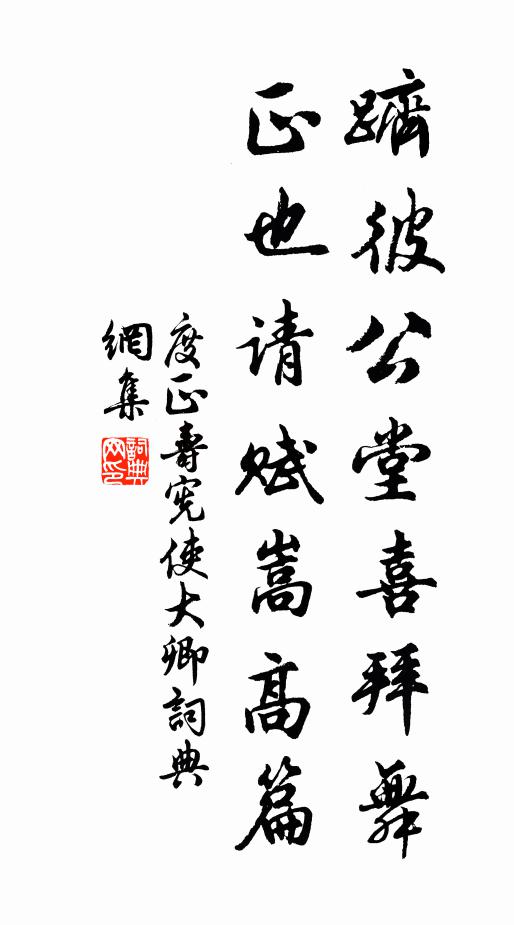 躋彼公堂喜拜舞
正也请赋嵩高篇
度正壽宪使大卿詞典
網集
詞典网印